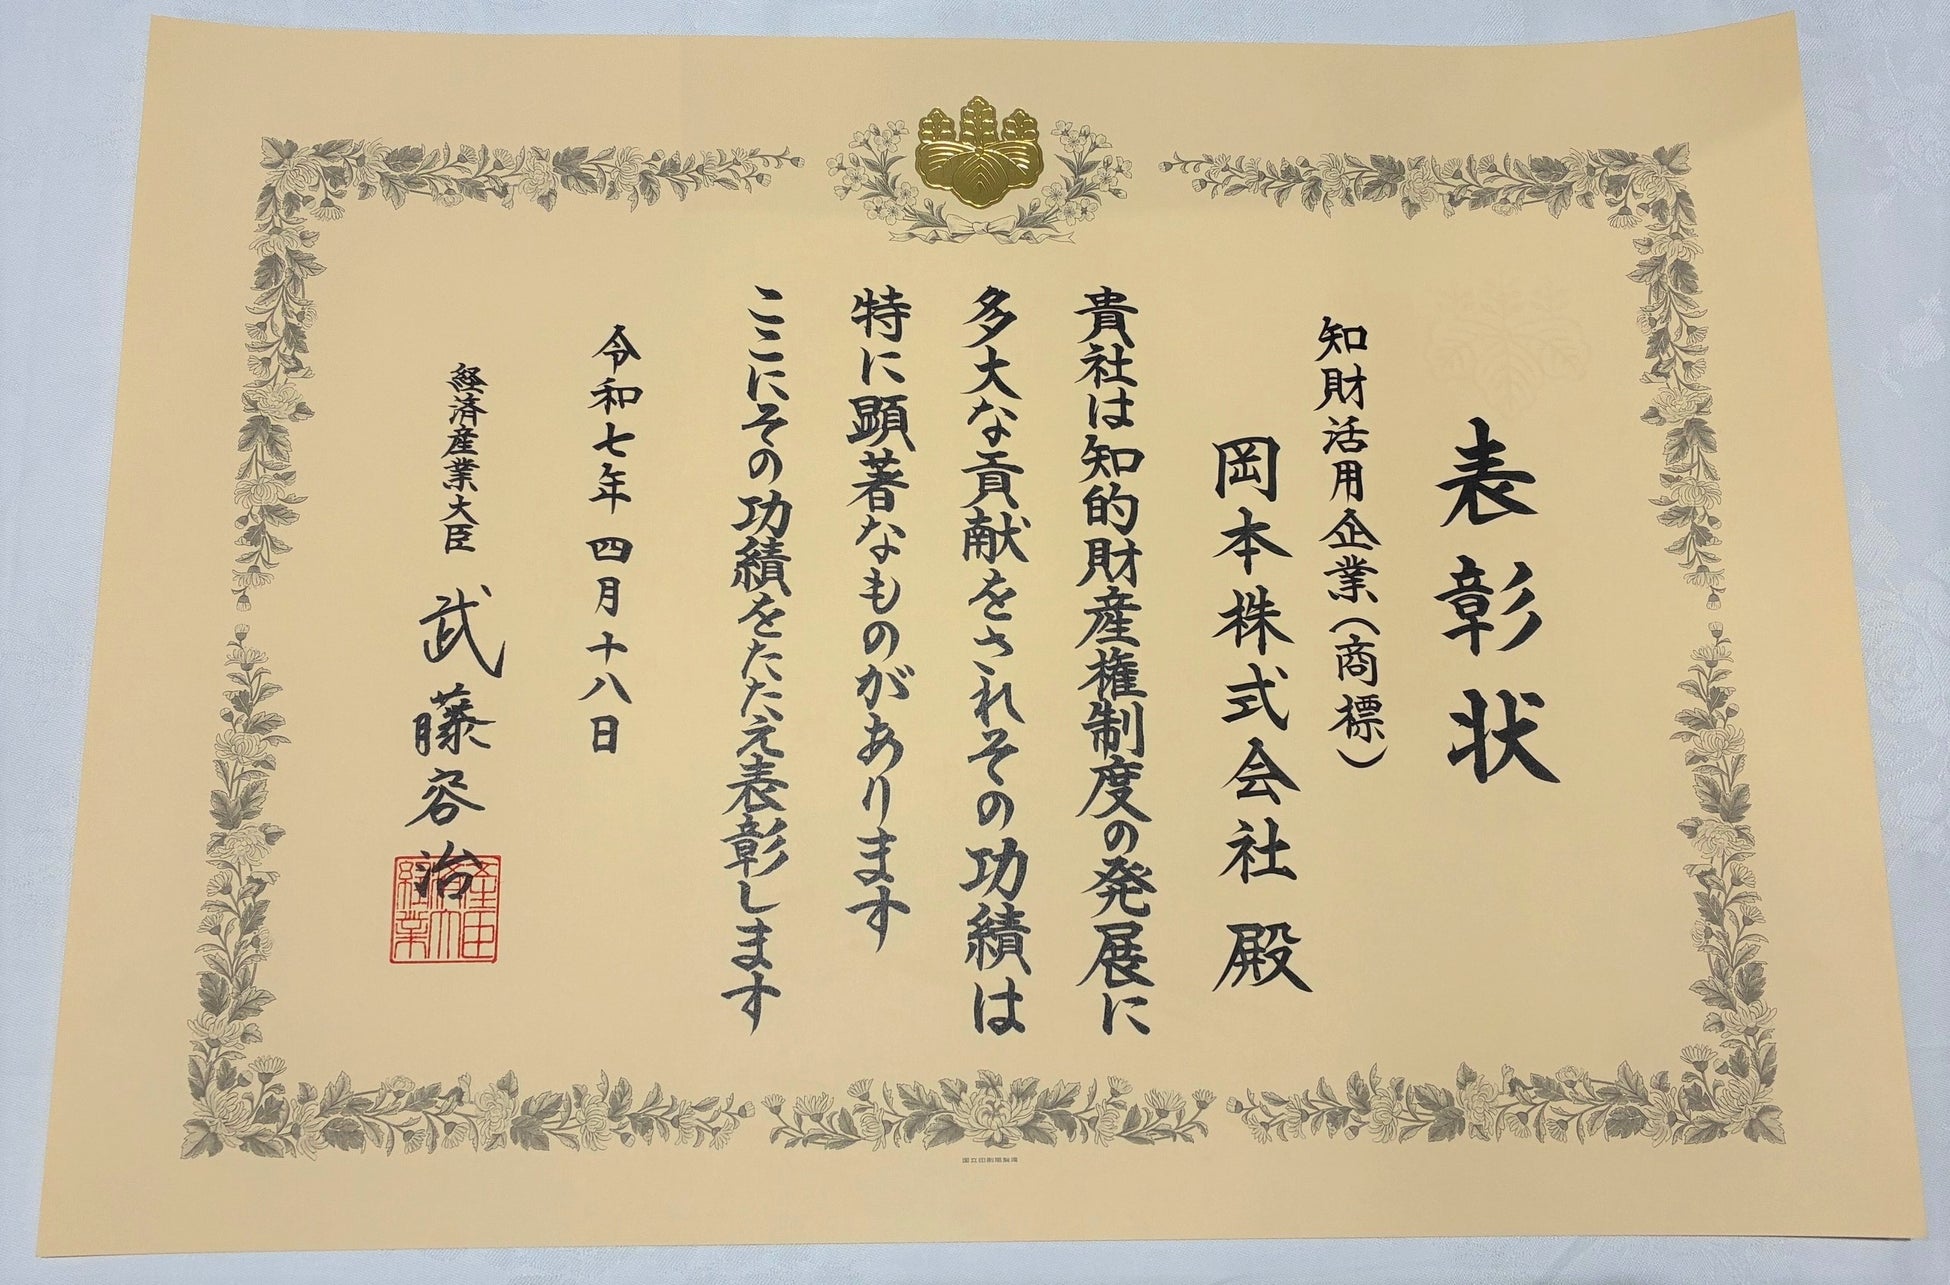 表彰状
知財活用企業（商標）
岡本株式会社 殿
貴社は知的財産権制度の発展に
多大な貢献をされその功績は
特に顕著なものがあります
ここにその功績をたたえ表彰します
令和七年四月十八日
経済産業大臣 武藤容治
国立印刷局製造